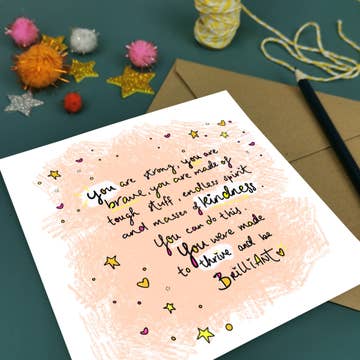 You are strong, you are
brave, you are made of
tough stuff, endless spirit
and masses of kindness
You can do this.
You were made
to thrive and be
BRilliANT